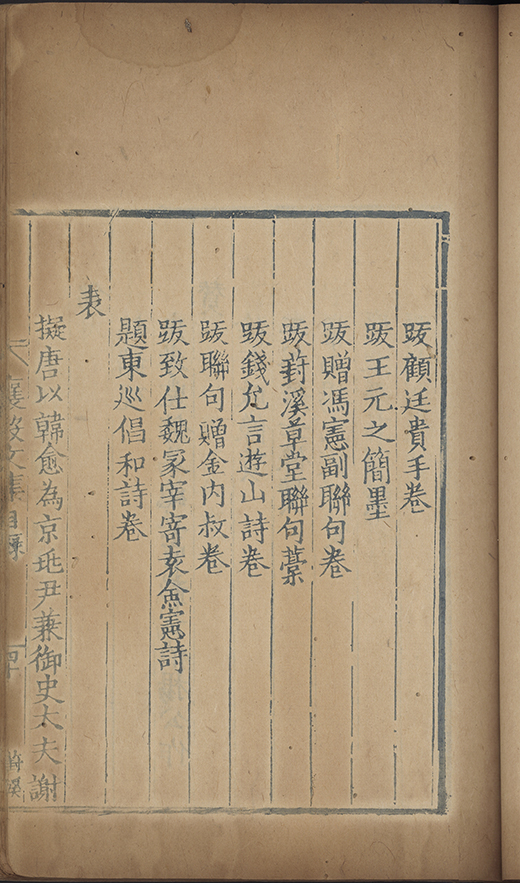 跋顧廷貴手卷
跋王元之簡墨
跋贈馮憲副聯句卷
跋葑溪草堂聯句藁
跋錢允言遊山詩卷
跋聯句贈金內叔卷
跋致仕魏冢宰寄袁僉憲詩
題東巡倡和詩卷
表
擬唐以韓愈為京兆尹兼御史大夫謝
襄毅文集目錄